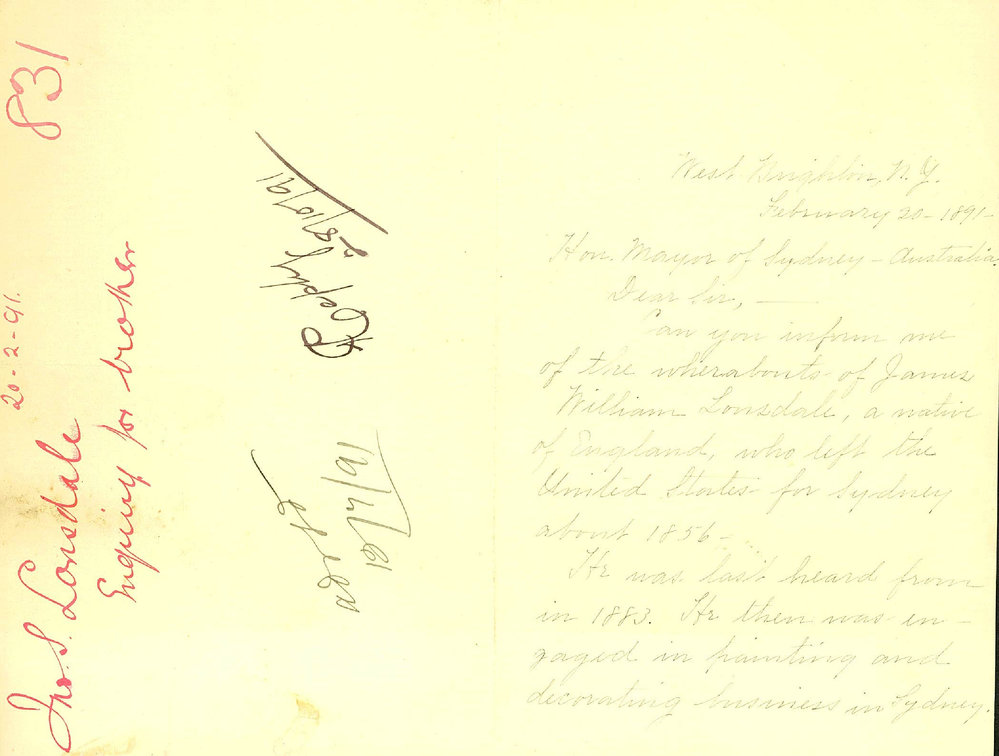 831
20-2-91.
Jno. S. Lonsdale
Enquiry for brother
Reply 28/10/91
19/4/91
West Brighton, N.Y.
February 20-1891-
Hon. Mayor of Sydney - Australia.
Dear Sir, —
Can you inform me
of the wherabouts of James
William Lonsdale, a native
of England, who left the
United States for Sydney
about 1856-
He was last heard from
in 1883. He then was en-
gaged in painting and
decorating business in Sydney.